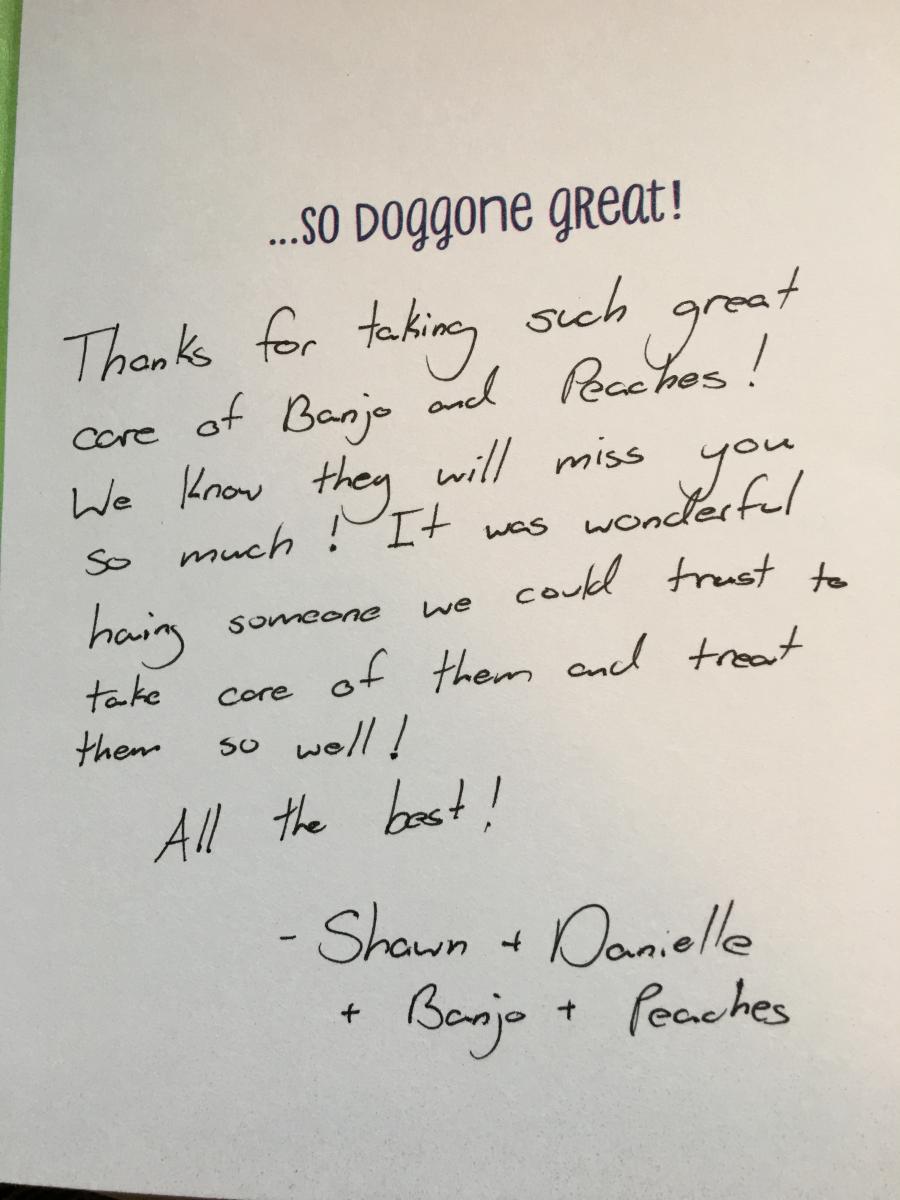 ...so Doggone great!
Thanks for taking such great
care of Banjo and Peaches!
We know they will miss you
so much! It was wonderful
haing someone we could trust to
take care of them and treat
them so well!
All the best!
- Shawn + Danielle
+ Banjo + Peaches